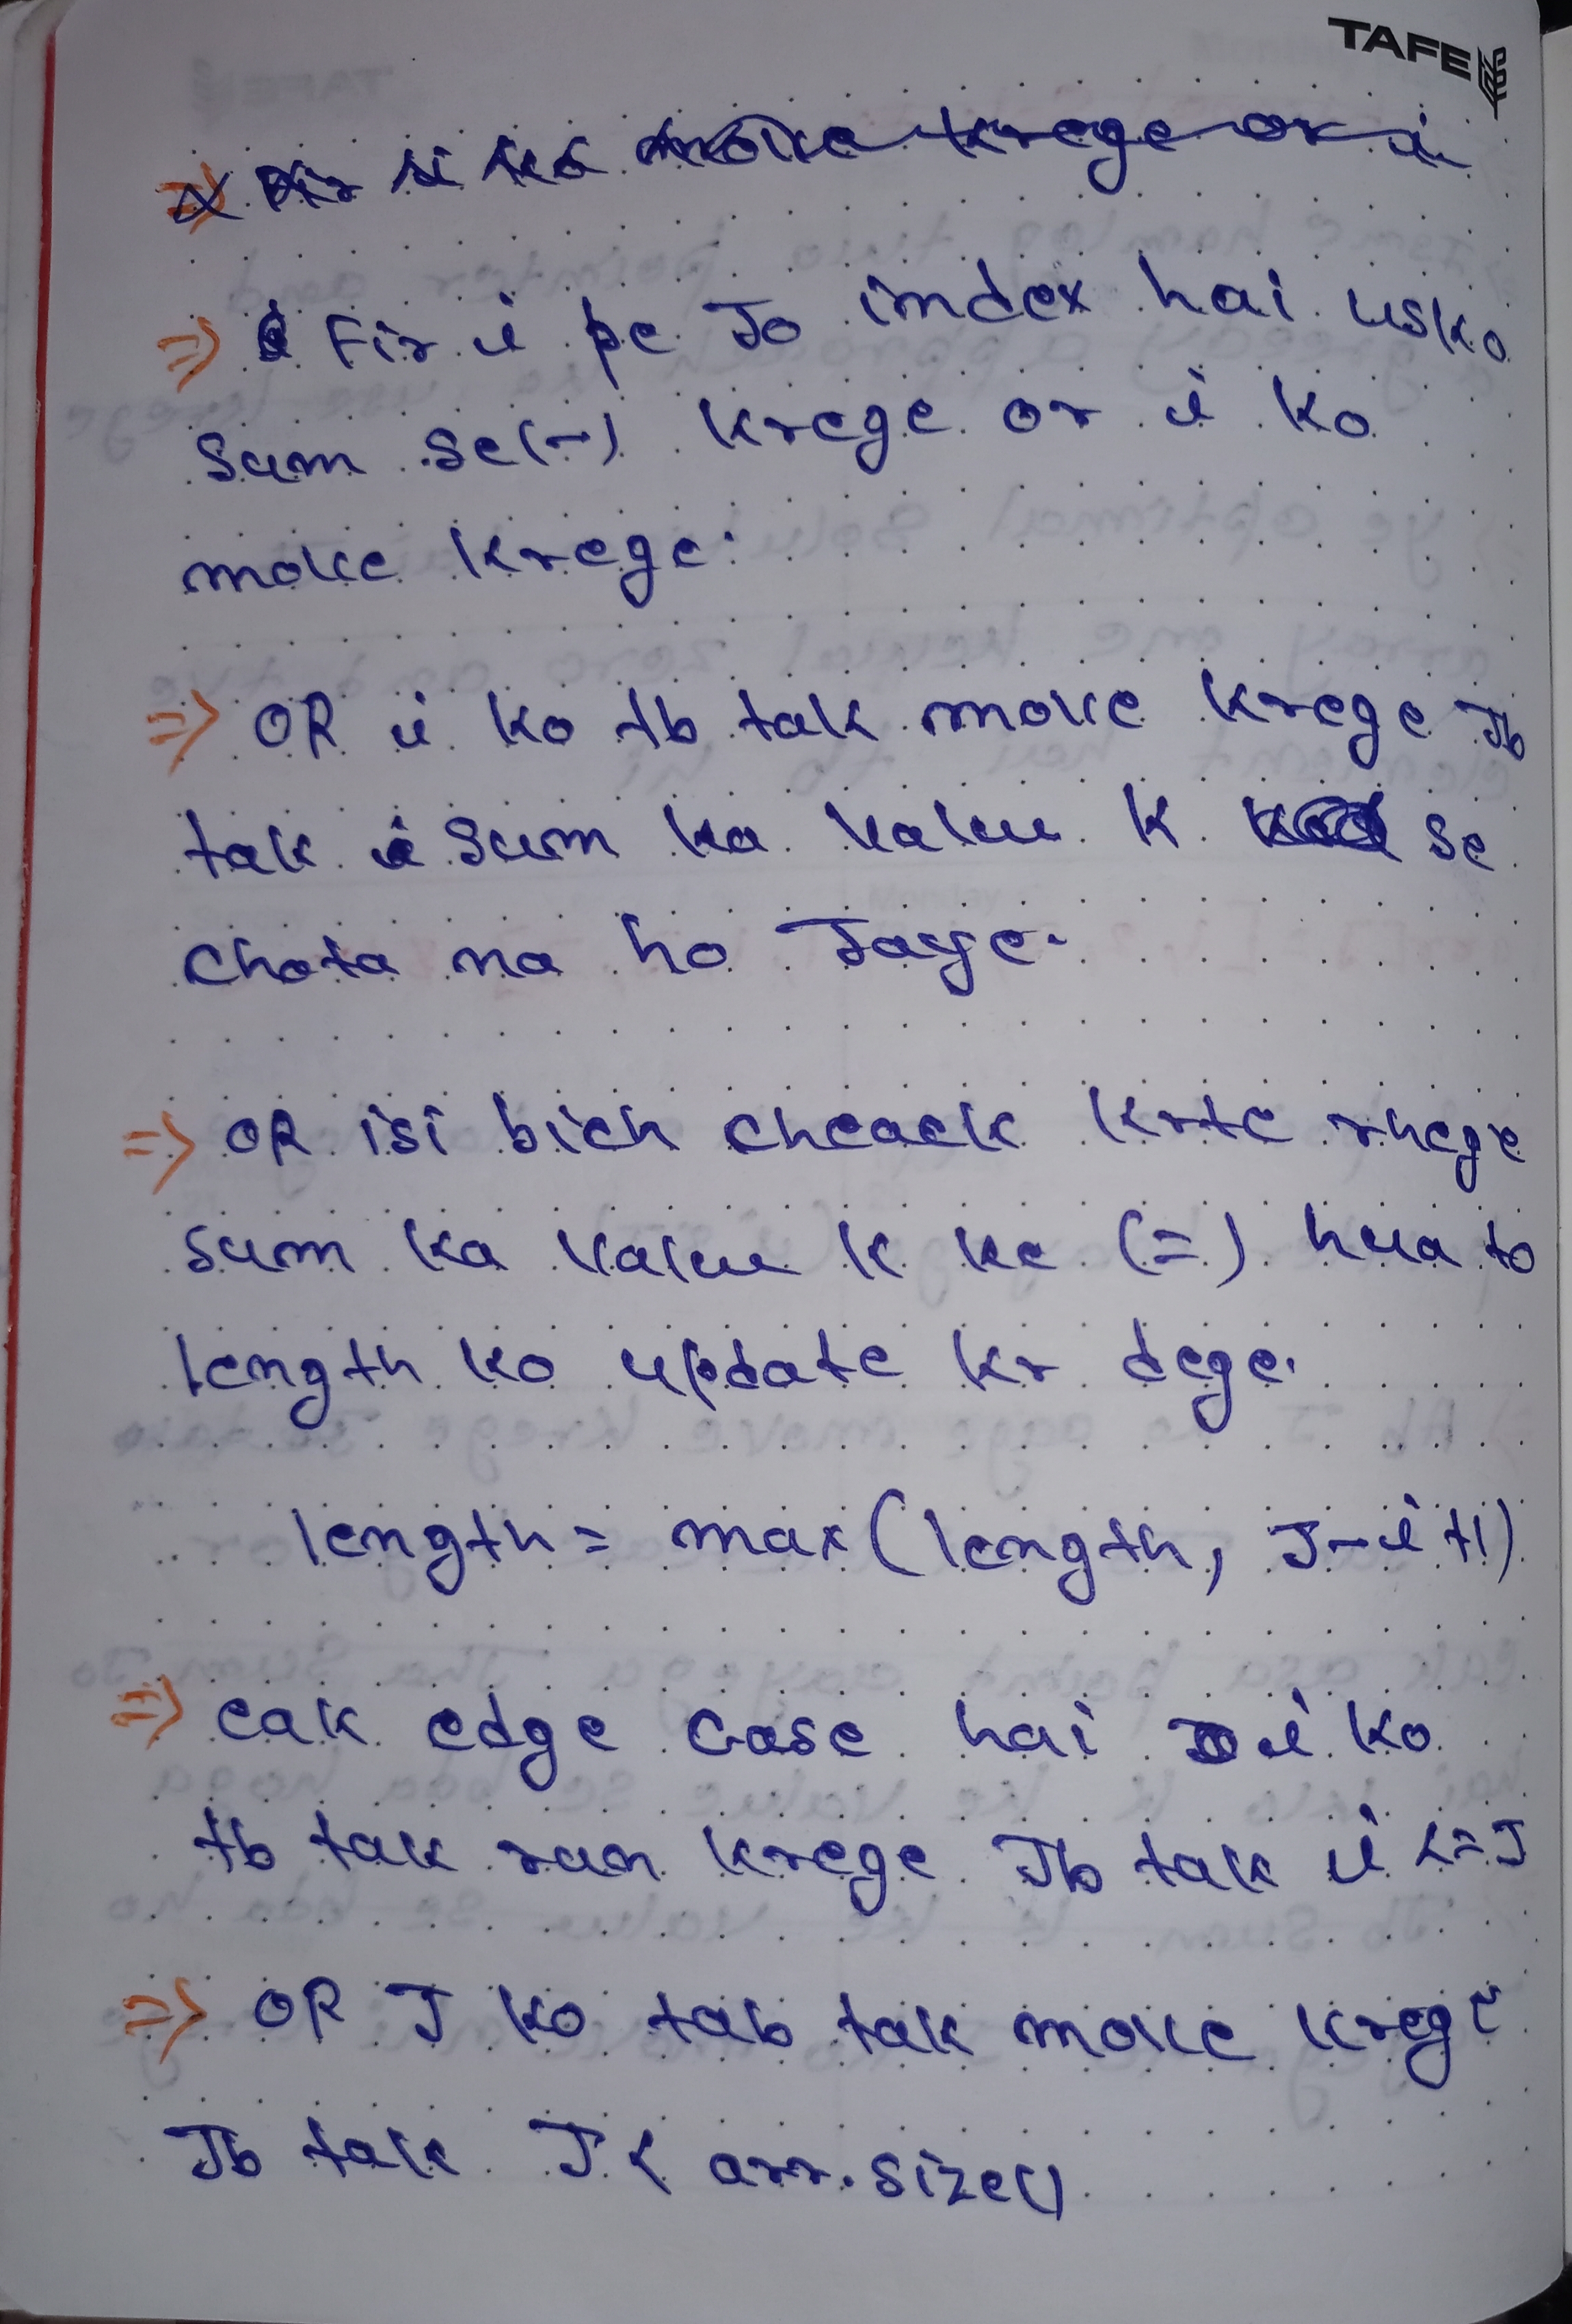 TAFE
=> Fir i ko move krege or i
=> Fir i pe Jo index hai usko
sum se(-) krege or i ko
move krege.
=> OR i ko tb tak move krege Jb
tak sum ka value K se
chota na ho Jaye.
=> OR isi bich cheack krte rhege
sum ka value k ke (=) hua to
length ko update kr dege.
length = max(length, J-i+1)
=> eak edge case hai i ko
tb tak run krege Jb tak i <= J
=> OR J ko tab tak move krege
Jb tak J < arr.size()